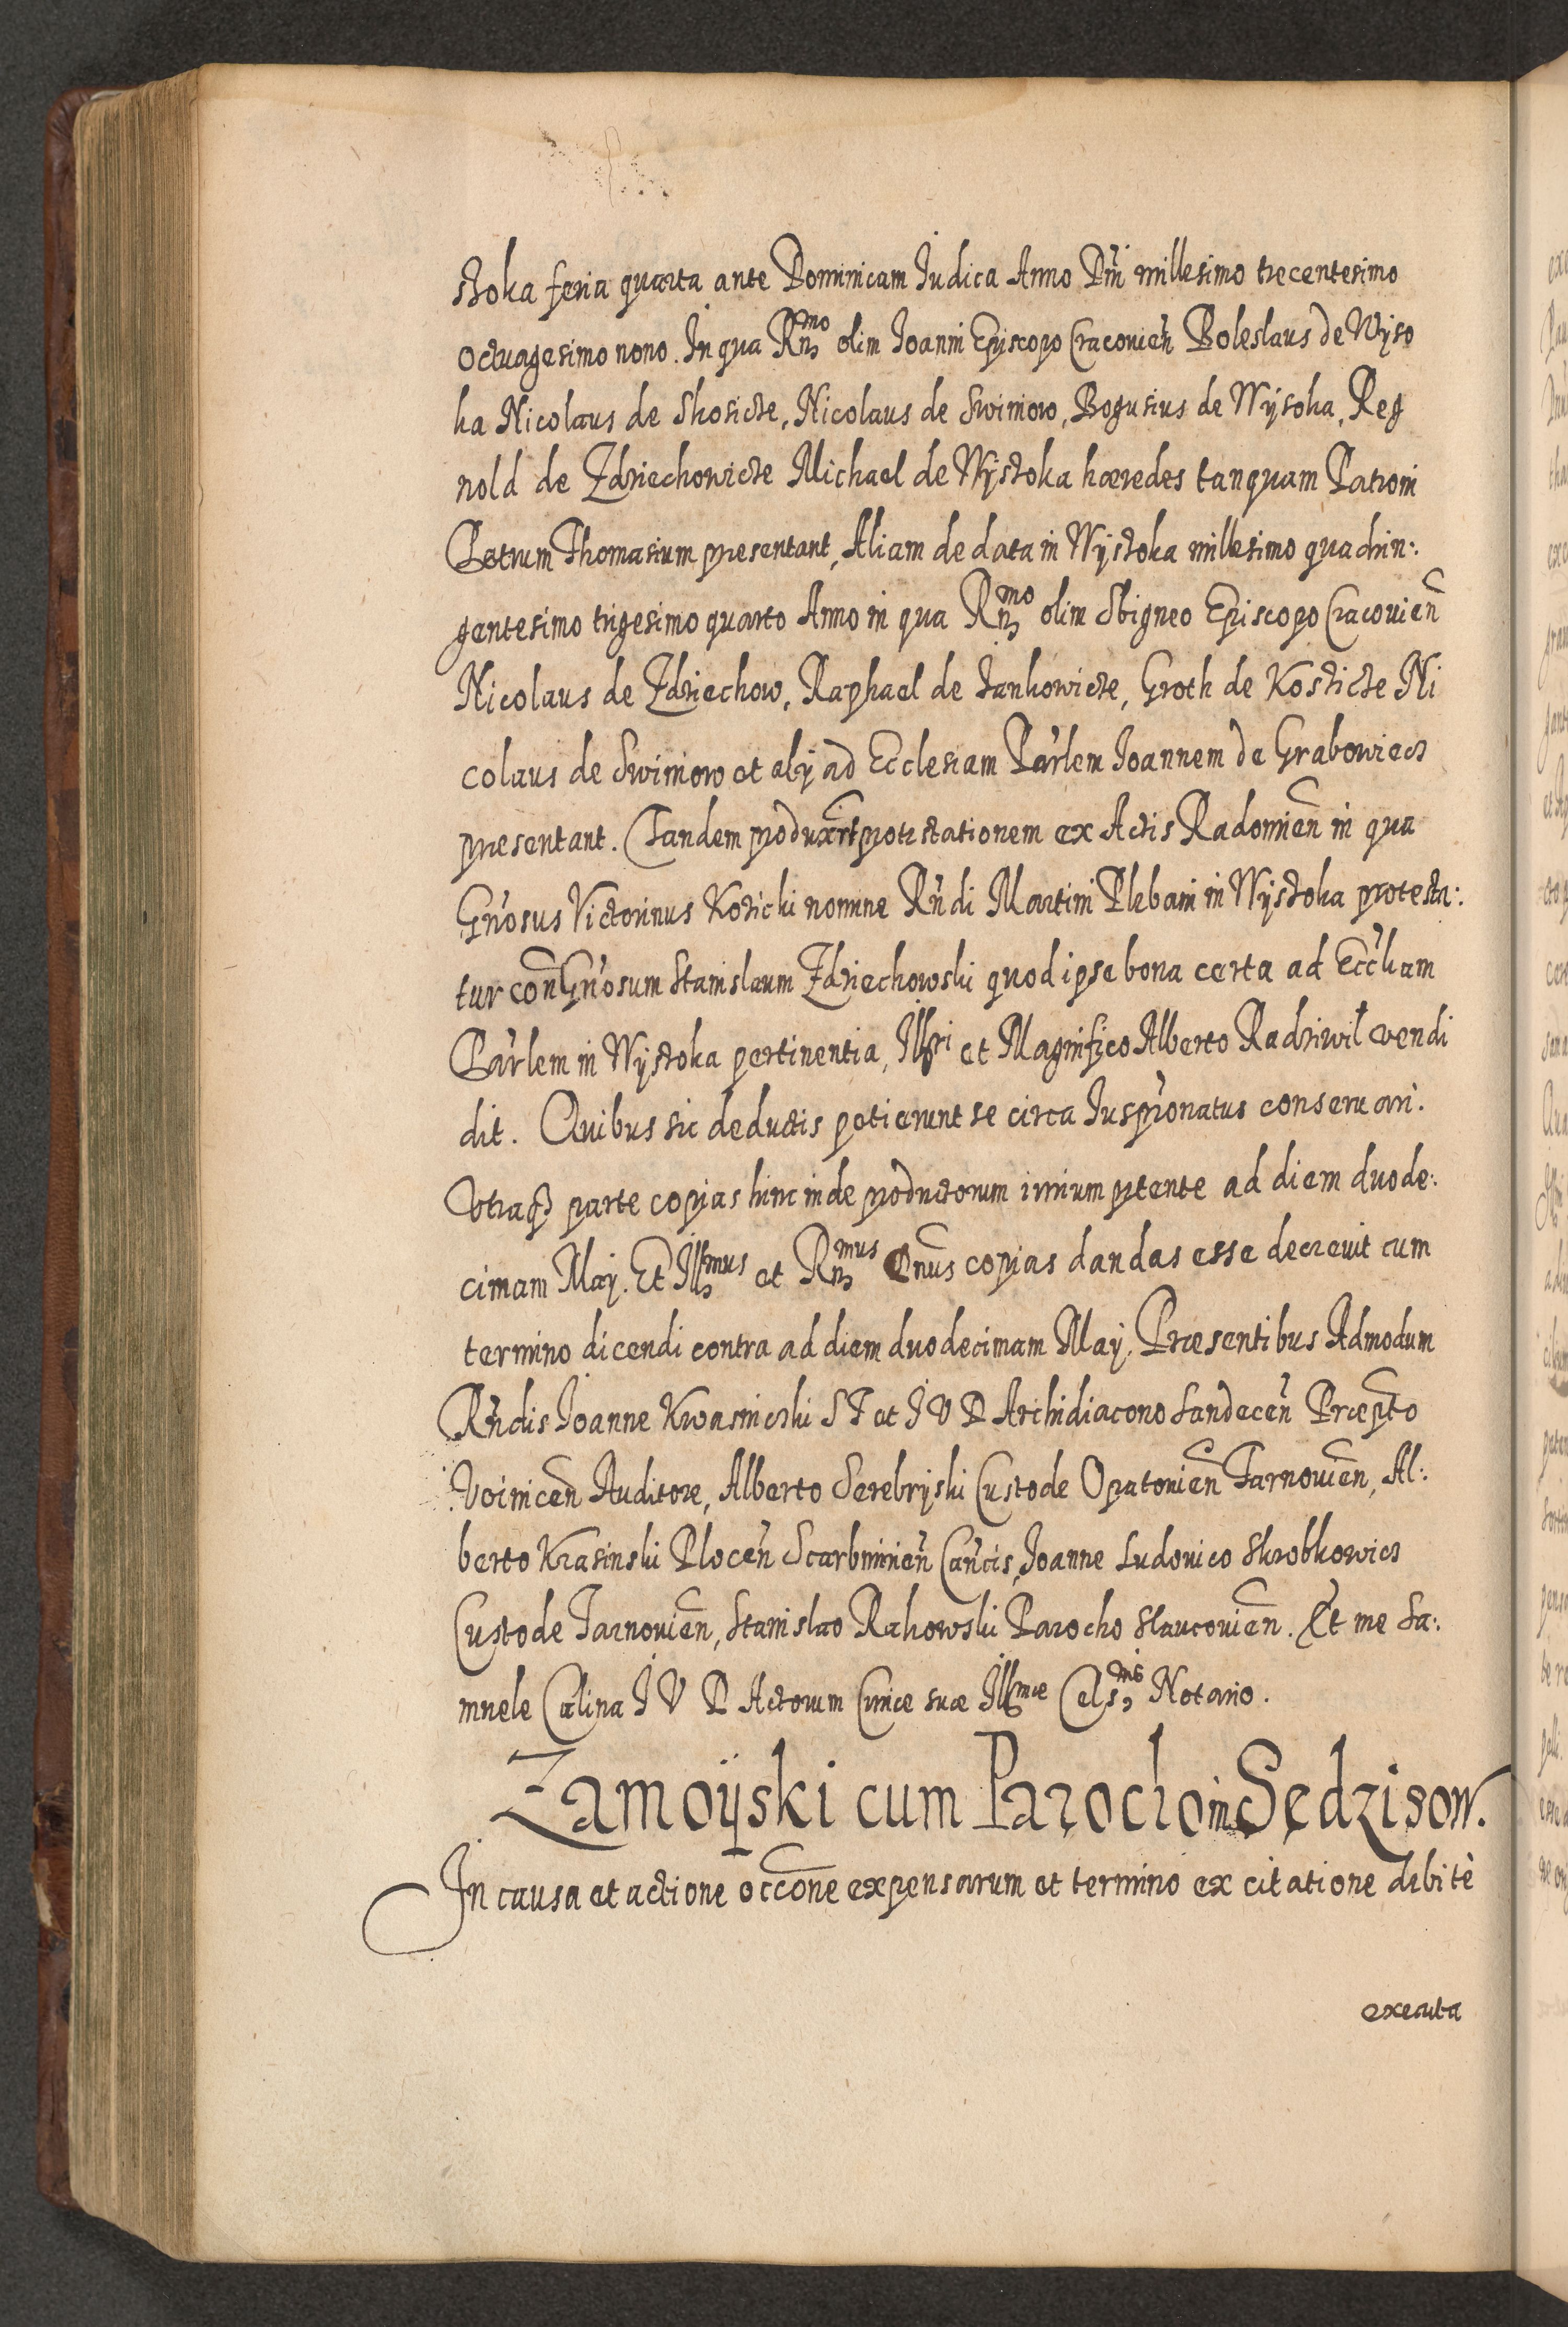 szoka feria quarta ante Dominicam Iudica Anno Dni millesimo trecentesimo
octuagesimo nono. In qua Rn̄dmo olim Joanni Episcopo Cracovien Boleslaus de Wyso
ka Nicolaus de Skosicze, Nicolaus de Swinow, Bogusius de Wysoka, Reg
nold de Zdziechowicze Michael de Wyszoka hæredes tanquam Patroni
Petrum Thomasium presentant, Aliam de data in Wyszoka millesimo quadrin:
gentesimo trigesimo quarto Anno in qua Rndmo olim Sbigneo Episcopo Cracovien
Nicolaus de Zdziechow, Raphael de Jankowicze, Groth de Koszicze Ni
colaus de Swinow et alÿ ad Ecclesiam Parlem Joannem de Grabowiecz
presentant. Tandem produxert protestationem ex Actis Radomien in qua
Gn̄osus Victorinus Kozicki nomine Rn̄di Martini Plebani in Wyszoka protesta:
tur con Gn̄osum Stanislaum Zdziechowski quod ipse bona certa ad Eccliam
Parlem in Wyszoka pertinentia, Illri et Magnifico Alberto Radziwił vendi
dit. Quibus sic deductis petierunt se circa Juspronatus conservari.
Utraq parte copias hinc inde productorum irrium ptente ad diem duode:
cimam Maÿ. Et Illmus et Rndmus Dnus copias dandas esse decrevit cum
termino dicendi contra ad diem duodecimam Maÿ. Præsentibus Admodum
Rn̄dis Joanne Kwasnicki S T et J V D Archidiacono Sandecen Præpto
Voinicen Auditore, Alberto Serebryski Custode Opatovien Tarnovien, Al:
berto Krasinski Plocen Scarbimirien Cancis, Joanne Ludovico Skrobkowicz
Custode Tarnovien, Stanislao Rakowski Parocho Slaucovien. Et me Sa:
muele Calina J V D Actorum Curiæ suæ Illmæ Cels nis Notario.
Zamoÿski cum Parocho in Sędziszow.
In causa et actione occone expensarum et termino ex citatione debitè
executa